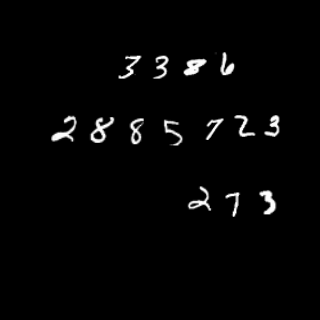 3386
2885723
273